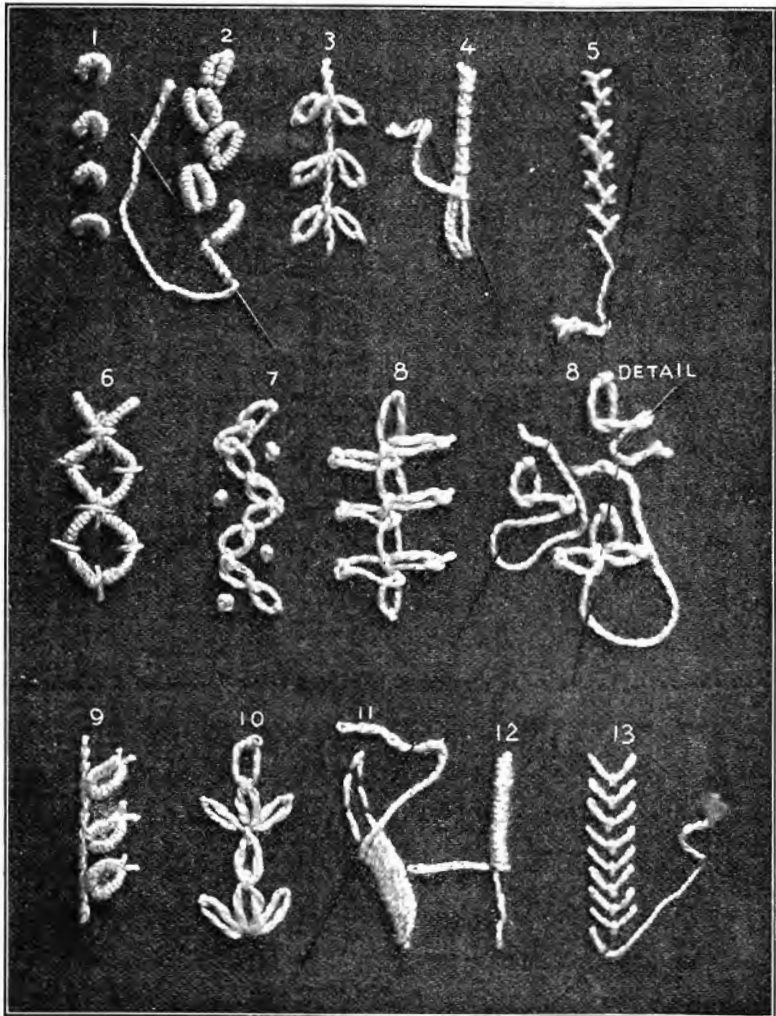 1 2 3 4 5
6 7 8 8 DETAIL
9 10 11 12 13